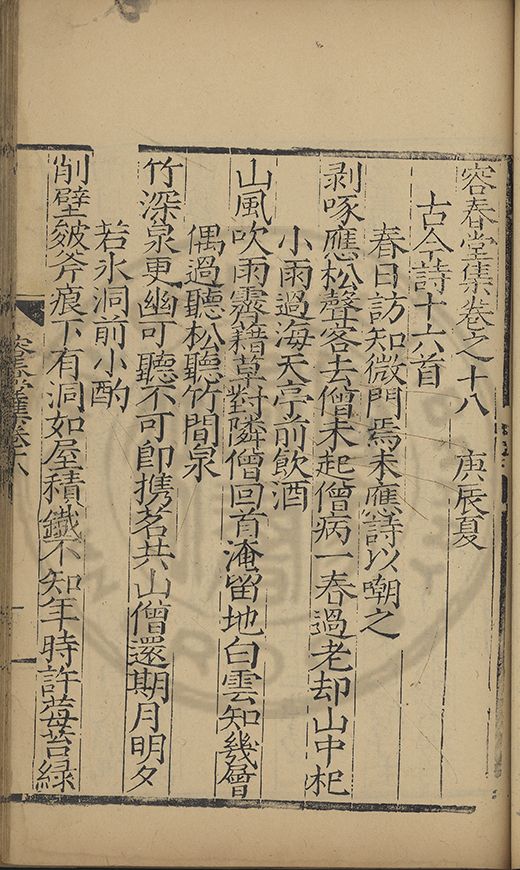 容春堂集卷之十八　庚辰夏
古今詩十六首
春日訪知微門焉未應詩以嘲之
剥啄應松聲客去僧未起僧病一春過老却山中杞
小雨過海天亭前飲酒
山風吹雨霽藉草對隣僧回首淹留地白雲知幾曾
偶過聽松聽竹間泉
竹深泉更幽可聽不可卽携茗共山僧還期月明夕
若氷洞前小酌
削壁皴斧痕下有洞如屋積鐵不知年時許莓苔緑